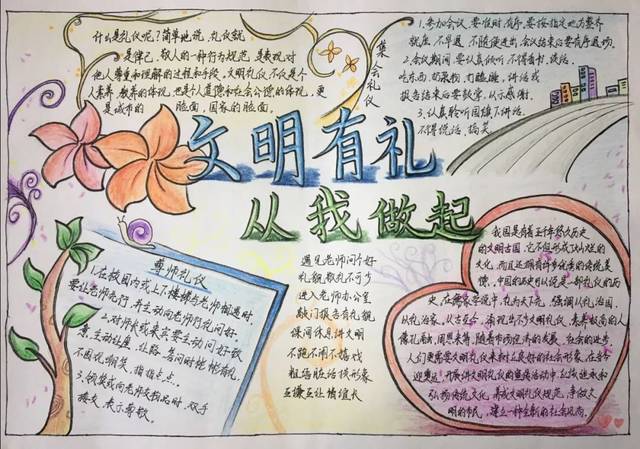 什么是礼仪呢?简单地说,礼仪就
是律己、敬人的一种行为规范,是表现对
他人尊重和理解的过程和手段。文明礼仪,不仅是个
人素养、教养的体现,也是个人道德和社会公德的体现。更
是城市的脸面,国家的脸面。
集会礼仪
1、参加会议,要准时、有序,要按指定地方整齐
就座,不早退,不随便进出,会议结束后要有序退场。
2、会议期间,要认真倾听,不得看书、谈话、
吃东西、
报告结束后要鼓掌,以示感谢。
3、认真聆听国旗下讲话。
不得说话、搞笑。
文明有礼
从我做起
尊师礼仪
1、在校园内或上下楼梯与老师相遇时,
要让老师先行,并主动向老师行礼问好。
2、对师长或来宾要主动问好致
意,主动让座、让路,
不围观嘲笑、指指点点。
3、领奖或向老师交接物品时,双手
接文,表示尊敬。
遇见老师问个好
礼貌敬礼不可少
进入老师办公室
敲门报告有礼貌
课间休息讲文明
不跑不闹不嬉戏
粗话脏话损形象
互谦互让情谊长
我国是有着五千年悠久历史
的文明古国,它不但形成了灿烂的
文化,而且还拥有许多优秀的传统美
德,中国的历史可以说是一部礼仪的历
史,在儒家学说中,
从礼治家。从古至今,涌现出不少文明礼仪,素养较高的人
像孔融、周恩来等。随着市内经济的发展,社会的进步,
人们更需要文明礼仪来树立良好的社会形象。在今年
开展讲文明礼仪的宣传活动中,继承和
弘扬传统文化,养成文明礼仪规范,争做文
明的市民,建立一种全新的社会风尚。